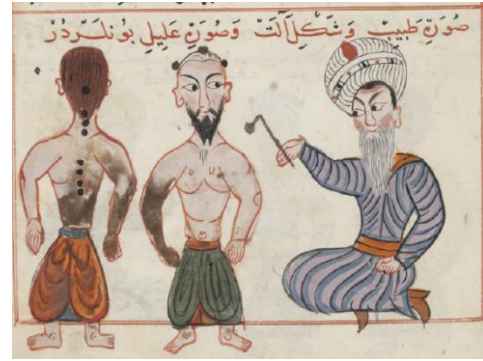 صُورَتِ طَبِيبْ وَشَكْلِ اٰلَتْ وَصُورَتِ عَلِيلْ بُونْلَرْدُرْ